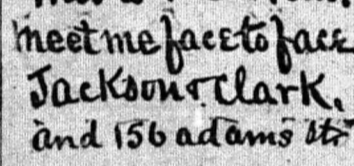 meet me face to face
Jackson & Clark.
and 156 adams str